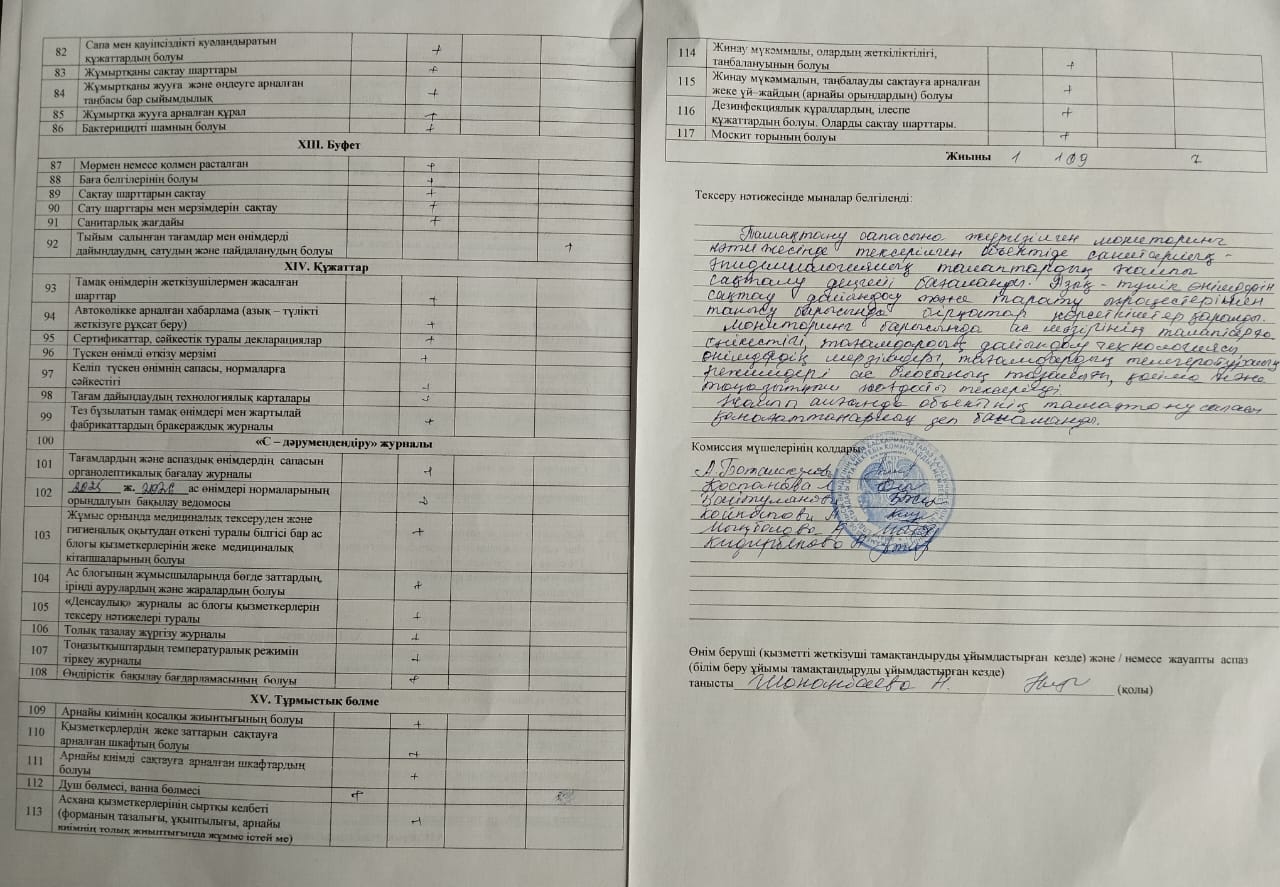 82 Сапа мен қауіпсіздікті куәландыратын +
құжаттардың болуы
83 Жұмыртқаны сақтау шарттары +
84 Жұмыртқаны жууға және өңдеуге арналған +
таңбасы бар сыйымдылық
85 Жұмыртқа жууға арналған құрал +
86 Бактерицидті шамның болуы +
XIII. Буфет
87 Мөрмен немесе қолмен расталған +
88 Баға белгілерінің болуы +
89 Сақтау шарттарын сақтау +
90 Сату шарттары мен мерзімдерін сақтау +
91 Санитарлық жағдайы +
92 Тыйым салынған тағамдар мен өнімдерді
дайындаудың, сатудың және пайдаланудың болуы +
XIV. Құжаттар
93 Тамақ өнімдерін жеткізушілермен жасалған
шарттар +
94 Автокөлікке арналған хабарлама (азық – түлікті
жеткізуге рұқсат беру) +
95 Сертификаттар, сәйкестік туралы декларациялар +
96 Түскен өнімді өткізу мерзімі +
97 Келіп түскен өнімнің сапасы, нормаларға
сәйкестігі +
98 Тағам дайындаудың технологиялық карталары +
99 Тез бұзылатын тамақ өнімдері мен жартылай
фабрикаттардың бракераждық журналы +
100 «С – дәрумендендіру» журналы
101 Тағамдардың және аспаздық өнімдердің сапасын
органолептикалық бағалау журналы +
102 2025 ж. 2026 ас өнімдері нормаларының
орындалуын бақылау ведомосы +
103 Жұмыс орнында медициналық тексеруден және
гигиеналық оқытудан өткені туралы білгісі бар ас +
блогы қызметкерлерінің жеке медициналық
кітапшаларының болуы
104 Ас блогының жұмысшыларында бөгде заттардың,
іріңді аурулардың және жаралардың болуы +
105 «Денсаулық» журналы ас блогы қызметкерлерін
тексеру нәтижелері туралы +
106 Толық тазалау жүргізу журналы +
107 Тоңазытқыштардың температуралық режимін
тіркеу журналы +
108 Өндірістік бақылау бағдарламасының болуы +
XV. Тұрмыстық бөлме
109 Арнайы киімнің қосалқы жиынтығының болуы +
110 Қызметкерлердің жеке заттарын сақтауға
арналған шкафтың болуы +
111 Арнайы киімді сақтауға арналған шкафтардың
болуы +
112 Душ бөлмесі, ванна бөлмесі +
113 Асхана қызметкерлерінің сыртқы келбеті
(форманың тазалығы, ұқыптылығы, арнайы +
киімнің толық жиынтығында жұмыс істей ме)
114 Жинау мүкәммалы, олардың жеткіліктілігі,
таңбалануының болуы +
115 Жинау мүкәммалын, таңбалауды сақтауға арналған
жеке үй–жайдың (арнайы орындардың) болуы +
116 Дезинфекциялық құралдардың, ілеспе +
құжаттардың болуы. Оларды сақтау шарттары.
117 Москит торының болуы +
Жиыны 1 109 2
Тексеру нәтижесінде мыналар белгіленді:
Тамақтану сапасына жүргізілген мониторинг
нәтижесінде тексерілген объектіде санитарлық -
эпидемиологиялық талаптардың жалпы
сақталу деңгейі бағаланды. Азық - түлік өнімдерін
сақтау дайындау және тарату процестерімен
танысу барысында құжаттар көрсеткіштер қаралды.
Мониторинг барысында ас мәзірінің талаптарға
сәйкестігі, тағамдарды дайындау технологиясы,
өнімдердің мерзімдері, тағамдардың температуралық
режимдері ас блогының тазалығы, және
тексерілді.
Жалпы алғанда объектінің тамақтану сапасы
қанағаттанарлық деп бағаланды.
Комиссия мүшелерінің қолдары
Қоспанова
Өнім беруші (қызметті жеткізуші тамақтандыруды ұйымдастырған кезде) және / немесе жауапты аспаз
(білім беру ұйымы тамақтандыруды ұйымдастырған кезде)
танысты Шонанбаева Н. (қолы)